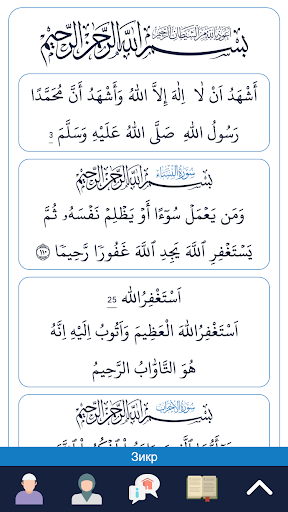 أعوذ بالله من الشيطان الرجيم
بِسْمِ اللَّهِ الرَّحْمَنِ الرَّحِيمِ
أَشْهَدُ اَنْ لَا اِلَهَ اِلاَّ اللهُ وَأَشْهَدُ أَنَّ مُحَمَّدًا
رَسُولُ اللهِ صَلَّى اللهُ عَلَيْهِ وَسَلَّمَ 3
سُورَةُ النِّسَاءِ
بِسْمِ اللَّهِ الرَّحْمَنِ الرَّحِيمِ
وَمَن يَعْمَلْ سُوٓءًا أَوْ يَظْلِمْ نَفْسَهُۥ ثُمَّ
يَسْتَغْفِرِ ٱللَّهَ يَجِدِ ٱللَّهَ غَفُورًا رَّحِيمًا ١١٠
اَسْتَغْفِرُالله 25
اَسْتَغْفِرُاللهَ الْعَظِيمَ وَاَتُوبُ اِلَيْهِ اِنَّهُ
هُوَ التَّاوَّابُ الرَّحِيمُ
سُورَةُ الْأَحْزَابِ
بِسْمِ اللَّهِ الرَّحْمَنِ الرَّحِيمِ
Зикр